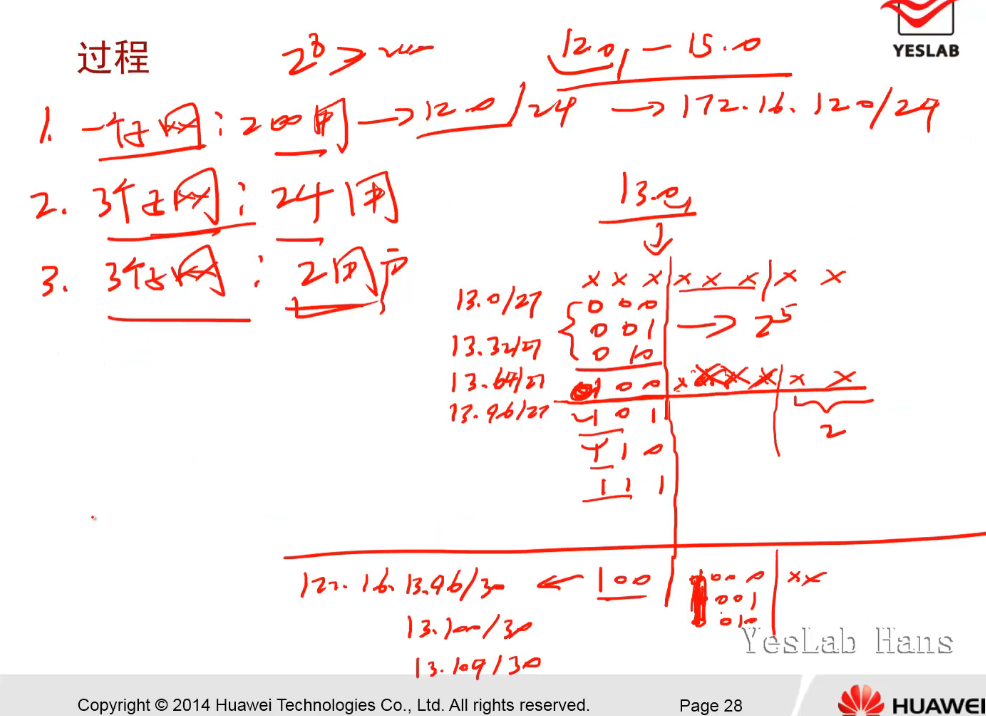 过程
2^8 ≥ 200
12.0 — 15.0
YESLAB
1. 一个子网: 200用 → 12.0/24 → 172.16.12.0/24
2. 3个子网: 24用
3. 3个子网: 2用户
13.0
x x x | x x x | x x
13.0/27 0 0 0
0 0 1 → 2^5
13.32/27 0 1 0
13.64/27 0 0 x x x
13.96/27 1 0 1 2
1 1 0
1 1 1
172.16.13.96/30 ← 1 0 0 0 0 0 xx
13.100/30 0 0 1
13.109/30 0 1 0
YesLab Hans
Copyright © 2014 Huawei Technologies Co., Ltd. All rights reserved.
Page 28
HUAWEI